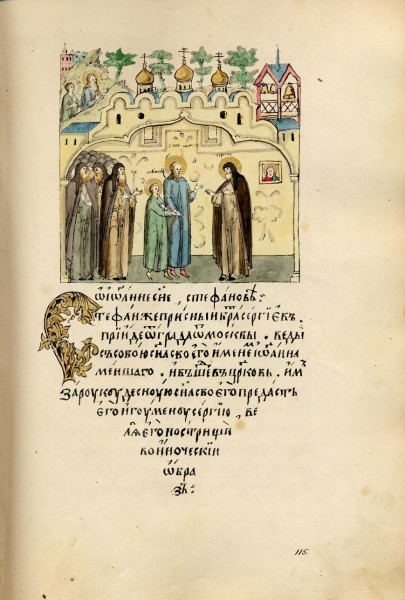 Ѡ іѡанне сн҃е, стефановѣ:
Стефан же присныи бра сергіевъ
прїиде ѿ града ѿ москвы. веды
съ собою сн҃а своего имене іѡанна
меншаго. и вшеⷣ въ црковь. имъ
за роукоу десноую сн҃а своего предасть
его игоуменоу сергїю ве
ля его постриши
во иноческіи
ѡбра
зъ:
115.